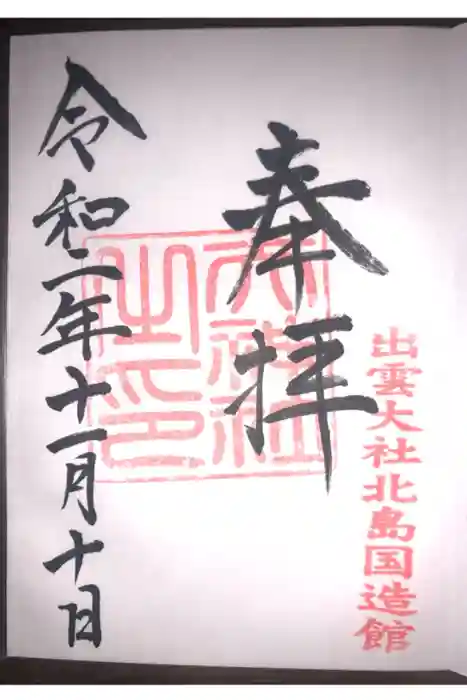 出雲大社北島国造館
奉拝
令和二年十一月十日